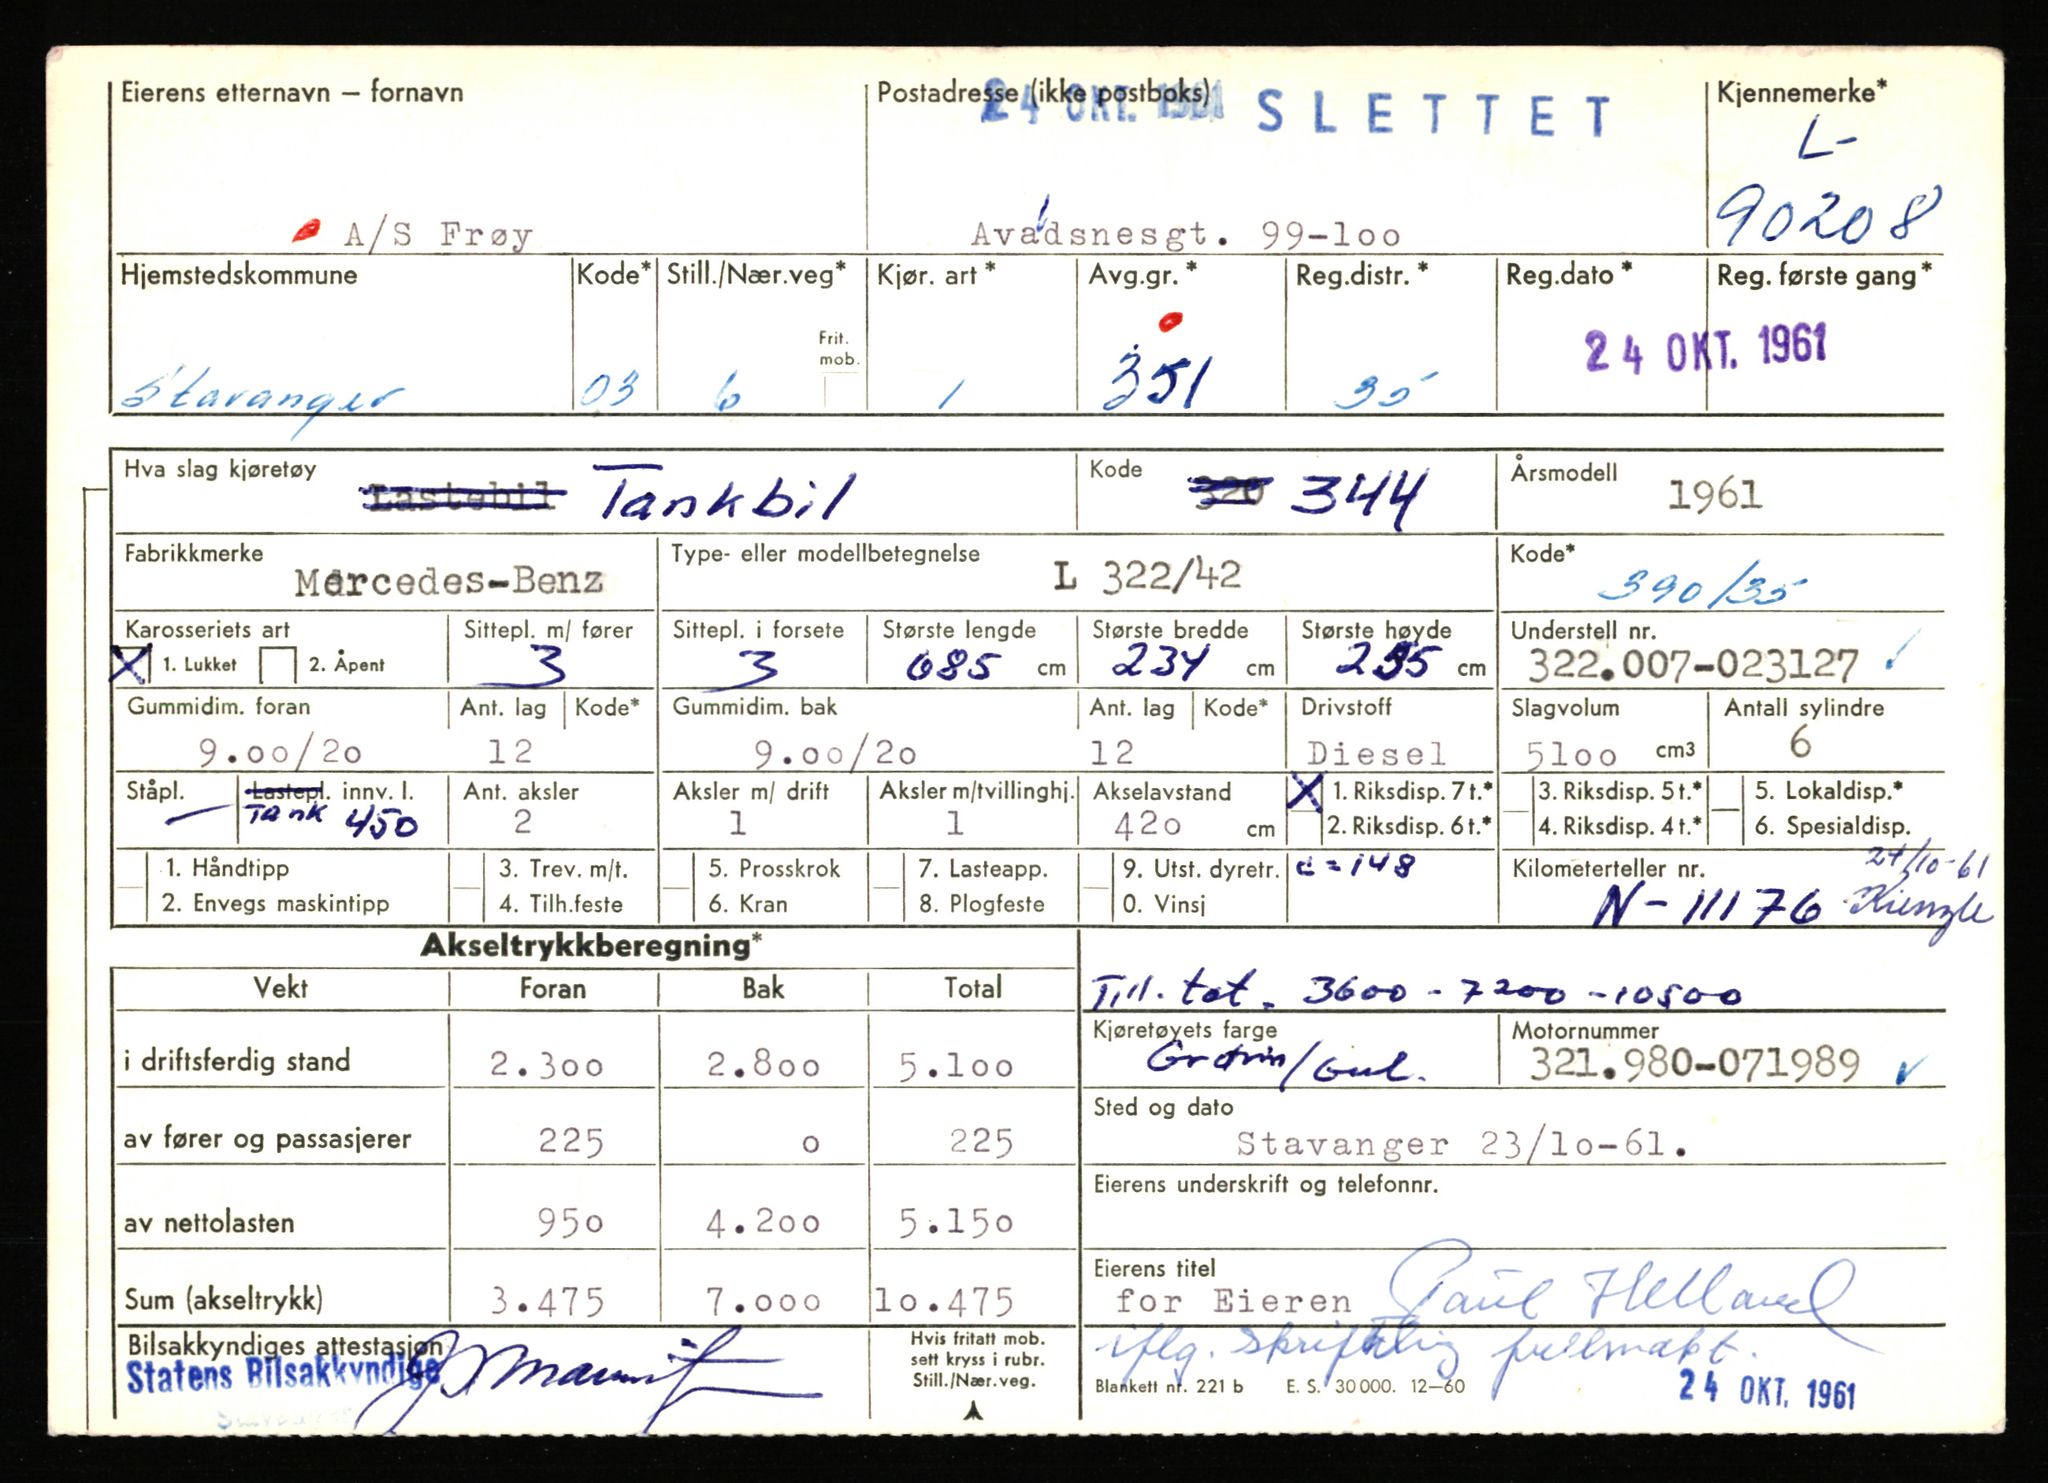 Eierens etternavn – fornavn
Postadresse (ikke postboks)
24 OKT. 1961 SLETTET
Kjennemerke*
L-
90208
A/S Frøy
Avaldsnesgt. 99-loo
Hjemstedskommune
Kode*
Still./Nær.veg*
Kjør. art*
Avg.gr.*
Reg.distr.*
Reg.dato*
Reg. første gang*
Frit.
mob.
Stavanger
03
6
1
351
35
24 OKT. 1961
Hva slag kjøretøy
Lastebil Tankbil
Kode
320 344
Årsmodell
1961
Fabrikkmerke
Mercedes-Benz
Type- eller modellbetegnelse
L 322/42
Kode*
390/35
Karosseriets art
X 1. Lukket 2. Åpent
Sittepl. m/ fører
3
Sittepl. i forsete
3
Største lengde
685 cm
Største bredde
234 cm
Største høyde
cm
Understell nr.
322.007-023127
Gummidim. foran
9.oo/2o
Ant. lag
12
Kode*
Gummidim. bak
9.oo/2o
Ant. lag
12
Kode*
Drivstoff
Diesel
Slagvolum
51oo cm3
Antall sylindre
6
Ståpl.
—
Lastepl. innv. l.
Tank 450
Ant. aksler
2
Aksler m/ drift
1
Aksler m/tvillinghj.
1
Akselavstand
42o cm
X 1. Riksdisp. 7 t.*
2. Riksdisp. 6 t.*
3. Riksdisp. 5 t.*
4. Riksdisp. 4 t.*
5. Lokaldisp.*
6. Spesialdisp.
1. Håndtipp
2. Envegs maskintipp
3. Trev. m/t.
4. Tilh.feste
5. Prosskrok
6. Kran
7. Lasteapp.
8. Plogfeste
9. Utst. dyretr.
0. Vinsj
c = 148
Kilometerteller nr.
24/10-61
N-11176 Kienzle
Akseltrykkberegning*
Vekt Foran Bak Total
i driftsferdig stand 2.3oo 2.8oo 5.1oo
av fører og passasjerer 225 o 225
av nettolasten 95o 4.2oo 5.15o
Sum (akseltrykk) 3.475 7.ooo 1o.475
Till. tot. 3600 - 7200 - 10500
Kjøretøyets farge
Grønn/Gul.
Motornummer
321.980-071989
Sted og dato
Stavanger 23/1o-61.
Eierens underskrift og telefonnr.
Eierens titel
for Eieren Paul Helland
iflg. skriftlig fullmakt.
Bilsakkyndiges attestasjon
Statens Bilsakkyndige
Hvis fritatt mob.
sett kryss i rubr.
Still./Nær.veg.
Blankett nr. 221 b E. S. 30000. 12–60
24 OKT. 1961